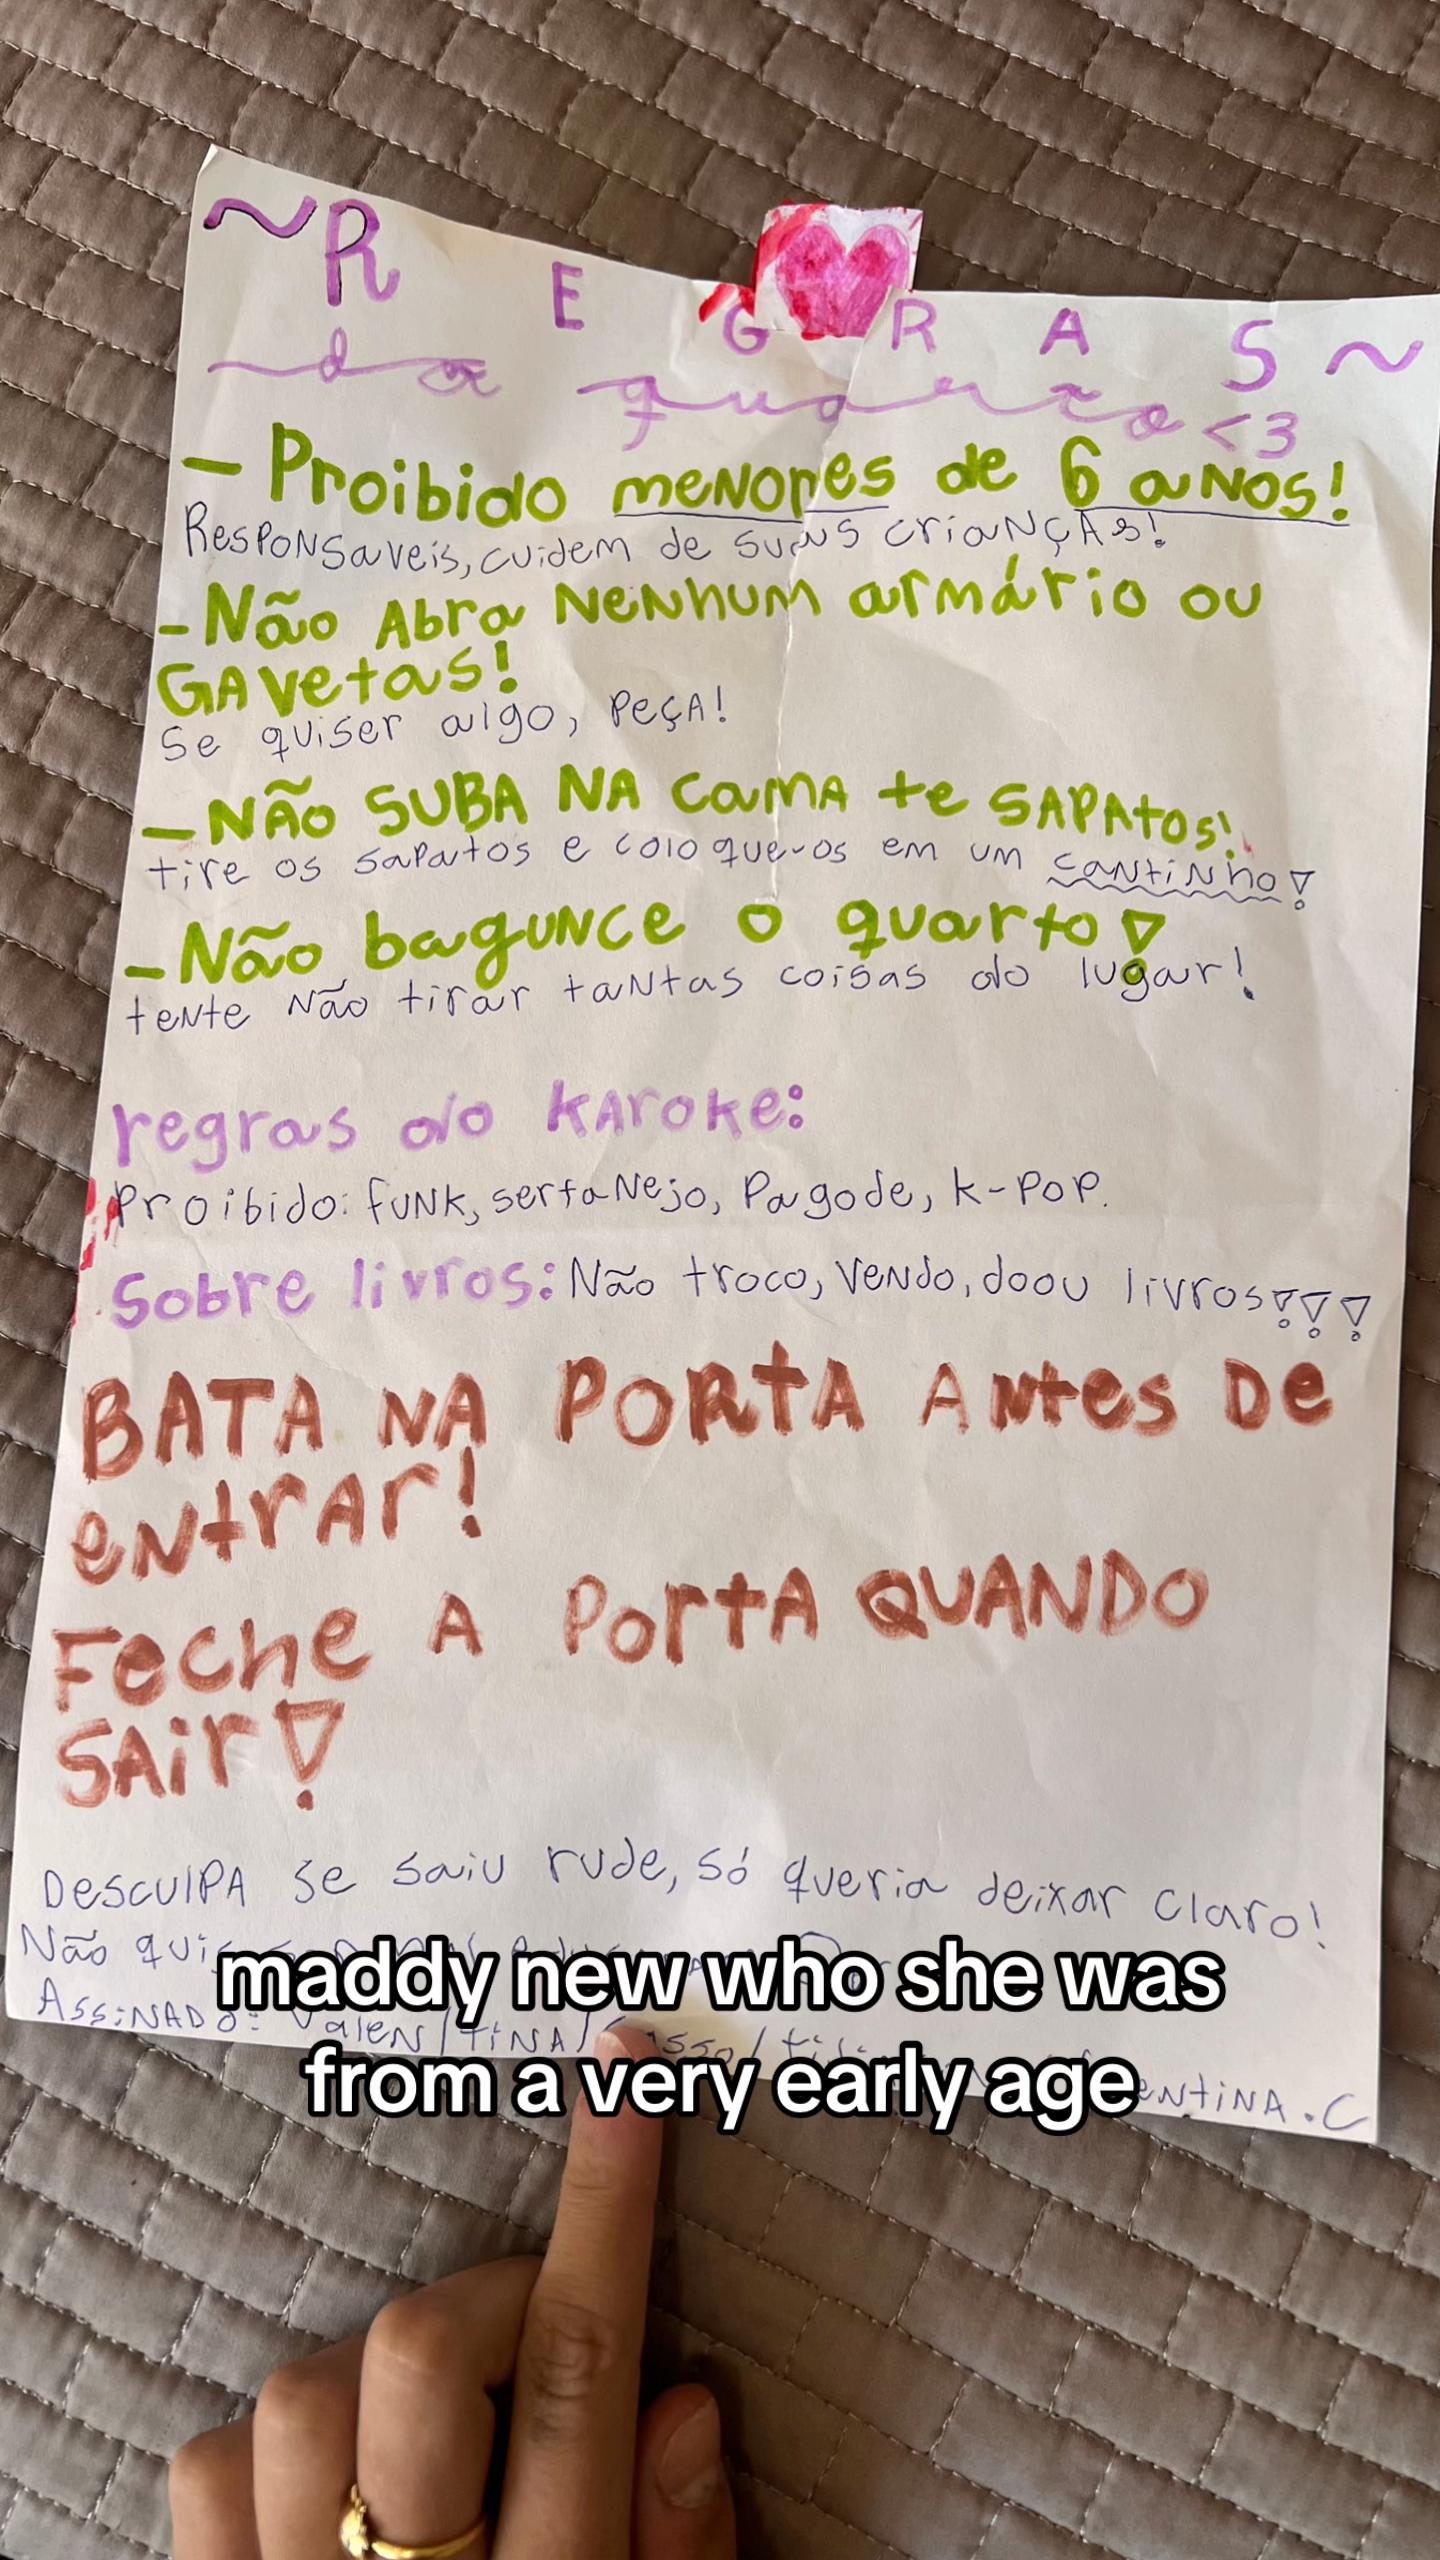 ~R E G R A S ~
do quarto <3
- Proibido menores de 6 anos!
Responsaveis, cuidem de suas crianças!
- Não Abra nenhum armário ou
GAvetas!
Se quiser algo, peça!
- NÃo SUBA NA camA te SAPAtos!
tire os sapatos e coloque-os em um cantinho!
- Não bagunce o quarto!
tente não tirar tantas coisas do lugar!
regras do karoke:
Proibido: funk, sertanejo, Pagode, k-pop.
Sobre livros: Não troco, vendo, doou livros!!!
BATA NA PORTA Antes De
entrAr!
Feche A PortA QUANDO
SAir!
DesculPA se saiu rude, só queria deixar claro!
Não quis
AssiNADo: ValeN/tiNA/
eNtiNA.C
maddy new who she was
from a very early age